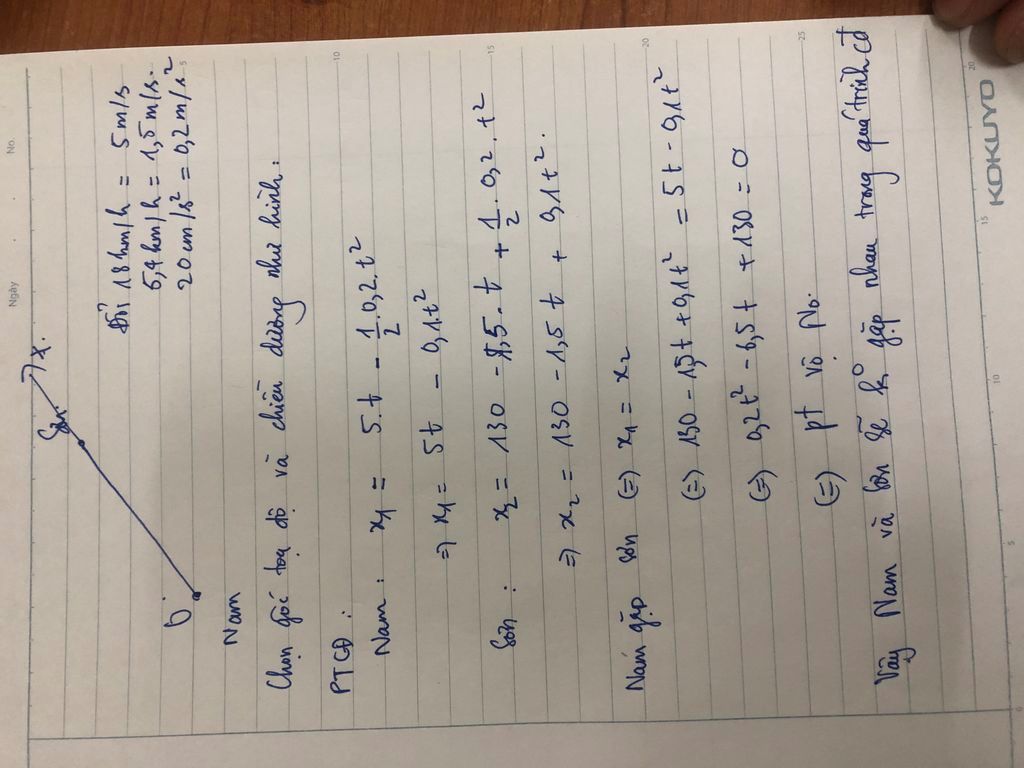 No.
Ngày
x.
Sơn
O
Nam
Đổi 18 km/h = 5 m/s
5,4 km/h = 1,5 m/s.
20 cm/s² = 0,2 m/s²
Chọn gốc toạ độ và chiều dương như hình.
PTCĐ:
Nam: x₁ = 5.t - 1/2 . 0,2.t²
=> x₁ = 5t - 0,1t²
Sơn: x₂ = 130 - 1,5.t + 1/2 . 0,2.t²
=> x₂ = 130 - 1,5t + 0,1t².
Nam gặp Sơn (=) x₁ = x₂
(=) 130 - 1,5t + 0,1t² = 5t - 0,1t²
(=) 0,2t² - 6,5t + 130 = 0
(=) pt vô No.
Vậy Nam và Sơn sẽ k° gặp nhau trong quá trình cđ
5
10
15
20
25
5
10
15
20
KOKUYO